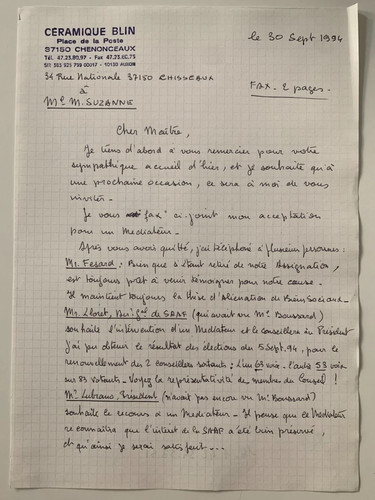 CÉRAMIQUE BLIN
Place de la Poste
37150 CHENONCEAUX
Tél. 47.23.80.97 - Fax 47.23.80.75
le 30 Sept 1994
34 Rue Nationale 37150 CHISSEAUX
FAX - 2 pages -
à
Me M. SUZANNE
Cher Maître,
Je tiens d'abord à vous remercier pour votre
sympathique accueil d'hier, et je souhaite qu'à
une prochaine occasion, ce sera à moi de vous
inviter -
Je vous "fax" si-joint mon acceptation
pour un Médiateur -
Après vous avoir quitté, j'ai téléphoné à plusieurs personnes :
Mr. Fesard : Bien que s'étant retiré de notre Assignation,
est toujours prêt à venir témoigner pour notre cause -
Il maintient toujours la thèse d'Alienation de Biens Sociaux -
Mr. Lloret, Dir. Gal de SAAF (qui avait vu Mr. Boussard)
souhaite l'intervention d'un Médiateur et le conseillera au Président
J'ai pu obtenir le résultat des élections du 5 Sept. 94, pour le
renouvellement des 2 conseillers sortants : L'un 63 voix - l'autre 53 voix
sur 85 votants - Voyez la représentativité des membres du Conseil !
Mr Lubrano, Président (n'avait pas encore vu Mr. Boussard)
souhaite le recours à un Médiateur - Il pense que le Médiateur
reconnaîtra que l'intérêt de la SAAF a été bien préservé,
et qu'ainsi je serai satisfait - - -